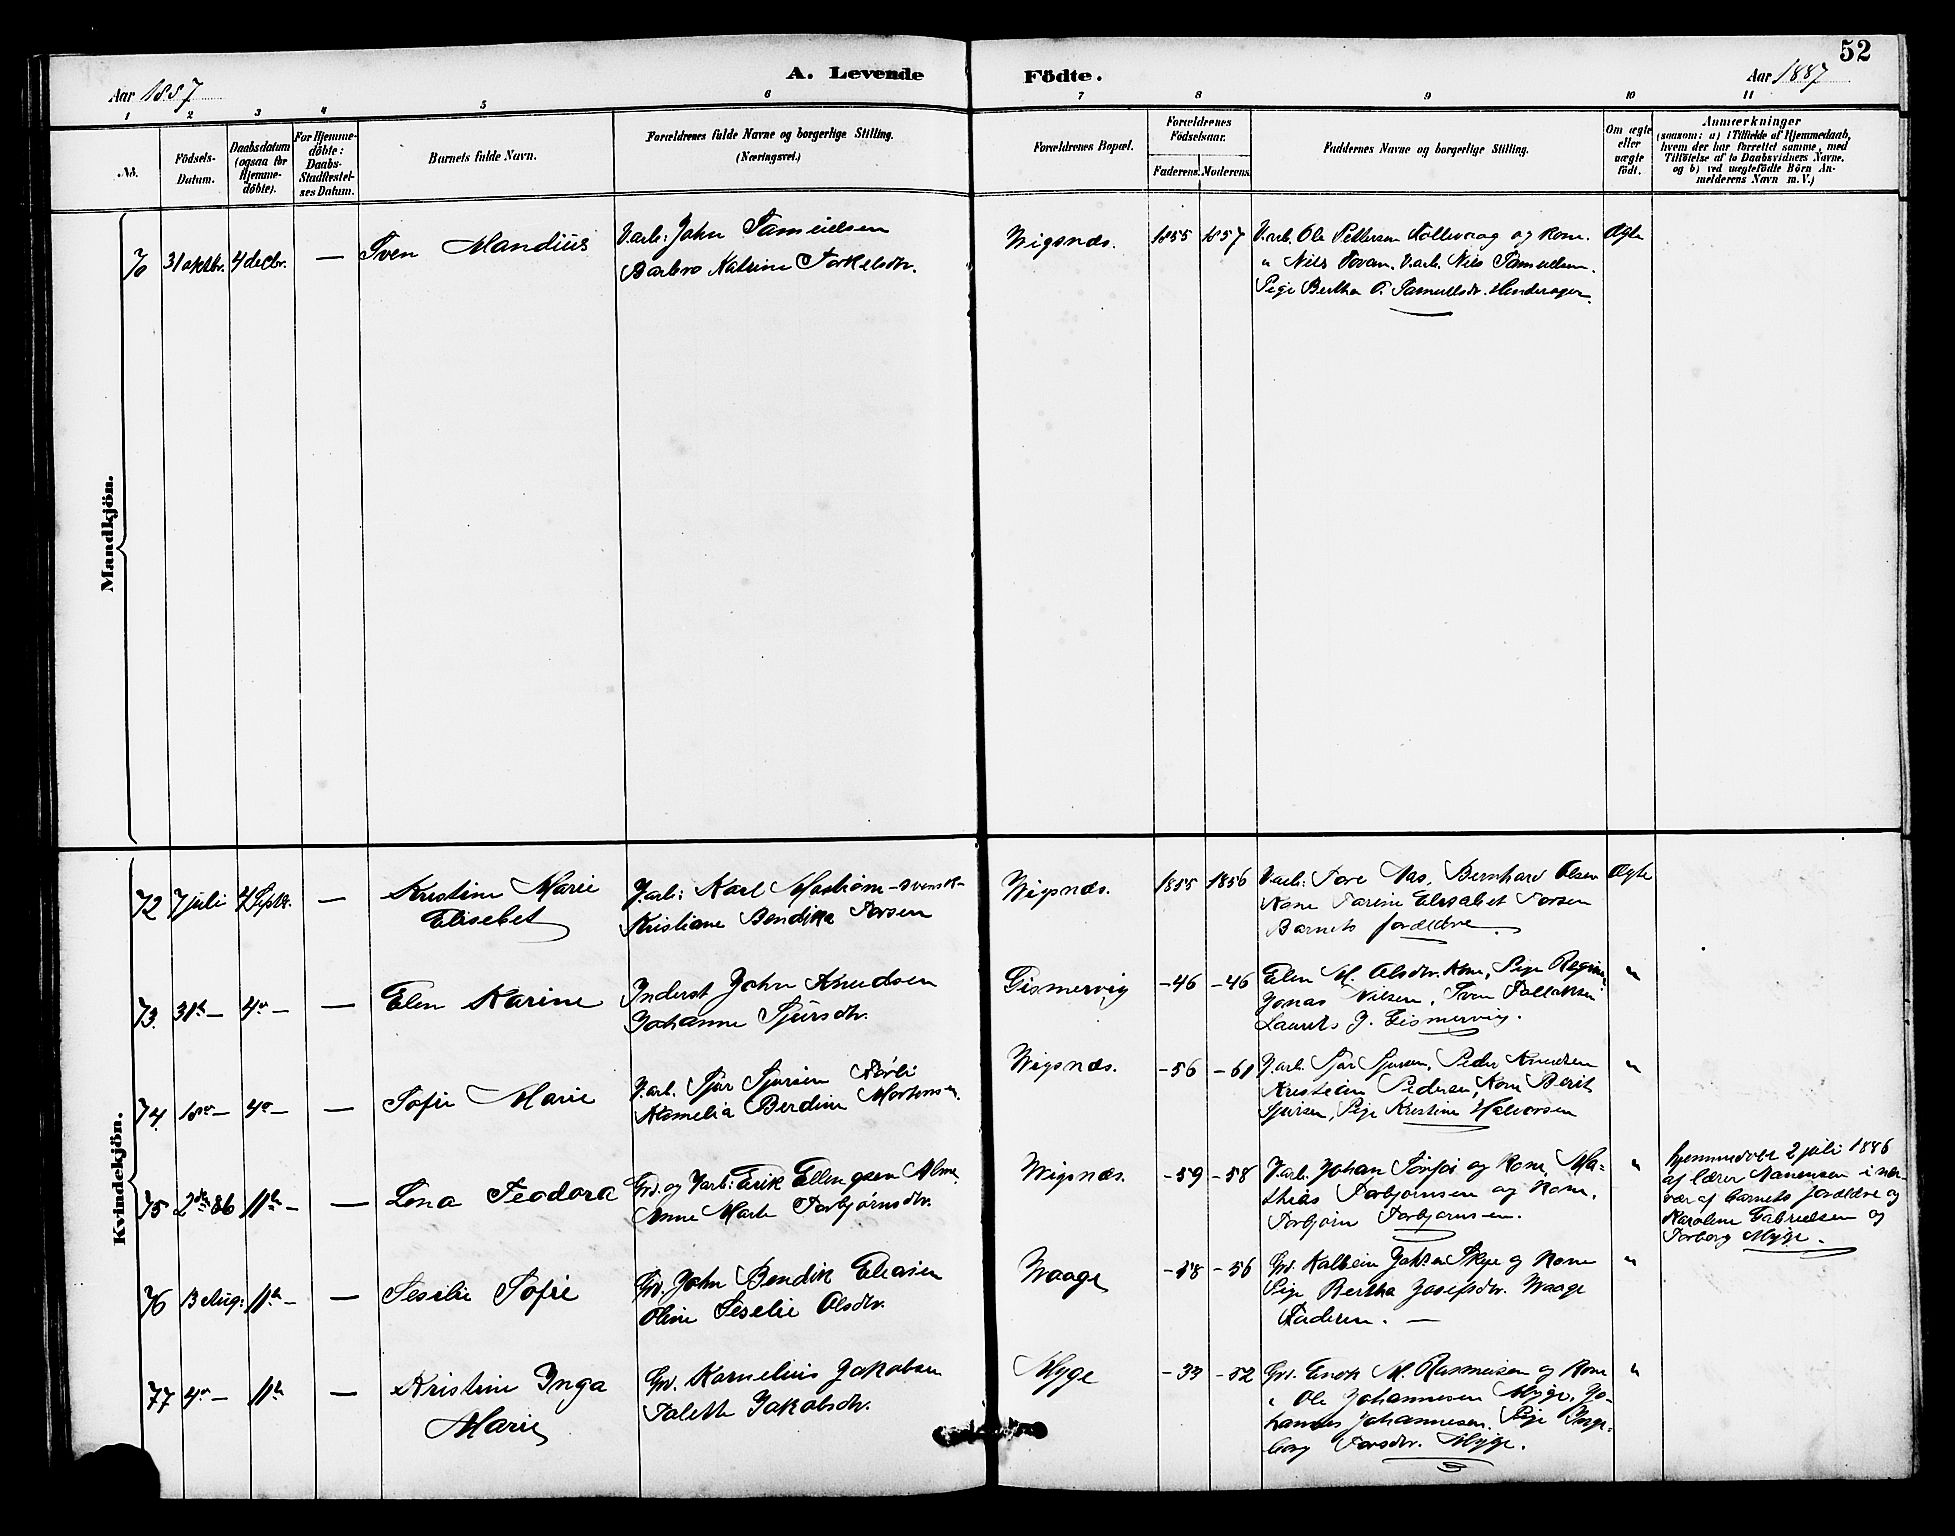 52
A. Levende Födte.
Aar 1887
Aar 1887
1 2 3 4 5 6 7 8 9 10 11
No.
Födsels-
Datum.
Daabsdatum
(ogsaa for
Hjemme-
döbte).
For Hjemme-
döbte:
Daabs-
Stadfæstel-
ses Datum.
Barnets fulde Navn.
Forældrenes fulde Navne og borgerlige Stilling.
(Næringsvei.)
Forældrenes Bopæl.
Forældrenes
Födselsaar.
Faderens. Moderens.
Faddernes Navne og borgerlige Stilling.
Om ægte
eller
uægte
födt.
Anmærkninger
(saasom: a) i Tilfælde af Hjemmedaab,
hvem der har forrettet samme, med
Tilföielse af to Daabsvidners Navne.
og b) ved uægtefödte Börn An-
melderens Navn m.V.)
Mandkjön.
70 31 oktbr. 4 decbr. — Sven Mandius
Varb: John Samuelsen
Barbro Katrine Torkelsdtr.
Wigsnæs. 1855 1857
Varb. Ole Pettersen og Kone.
" Nils Tovan. Varb. Nils Samuelsen.
Pige Bertha Samuelsdtr.
Ægte
Kvindekjön.
72 7 juli 4 Septbr. — Kristine Marie
Elisebet
Varb: Karl Mostrøm - svensk -
Kristiane Bendikke Torsen
Wigsnæs. 1855 1856
Varb: Tore Aas, Bernhard Olsen
Kone Tarine Elisabet Torsen
Barnets forældre.
Ægte
73. 31te — 4de — — Elen Karine
Inderst John Knudsen
Johanne Sjursdtr.
Gismervig - 46 - 46
Elen M. Olsdtr. Kone, Pige Regine
Jonas Nilsen, Sven
Laurits J. Gismervig.
"
74. 10de — 4de — — Sofie Marie
Varb. Sjur Sjursen
Kamelia Berdine Mortensen.
Wigsnæs. - 56 - 61
Varb. Sjur Sjursen, Peder Knudsen
Kristian Pedersen, Kone Berit
Sjursen, Pige Kristine Halvorsen
"
75 2 86 11te — — Lena Teodora
Grd. og Varb: Erik Ellingsen Alme,
Anne Marte Torbjørnsdtr.
Wigsnæs. - 59 - 58
Varb. Johan og Kone, Ma-
thias Torbjørnsen og Kone,
Torbjørn Torbjørnsen.
"
hjemmedøbt 2 juli 1886
af lærer i nær-
vær af barnets forældre og
Karoline Gabrielsen og
Torborg Myge.
76 13 Aug: 11te — — Sesilie Sofie
Grd. John Bendik Eliasen
Oline Seselie Olsdtr.
Waage - 58 - 56
Grd. og Kone
Pige Bertha Josefsdtr. Waage
Faderen. —
"
77 4de — 11te — Kristine Inga
Marie
Grd. Kornelius Jakobsen
Talette Jakobsdtr.
Myge - 33 - 52
Grd. Enok M. Rasmussen og Kone
" Ole Johannesen Myge, Jo-
hannes Johannesen. Pige Inge-
borg Torsdtr. Myge.
"